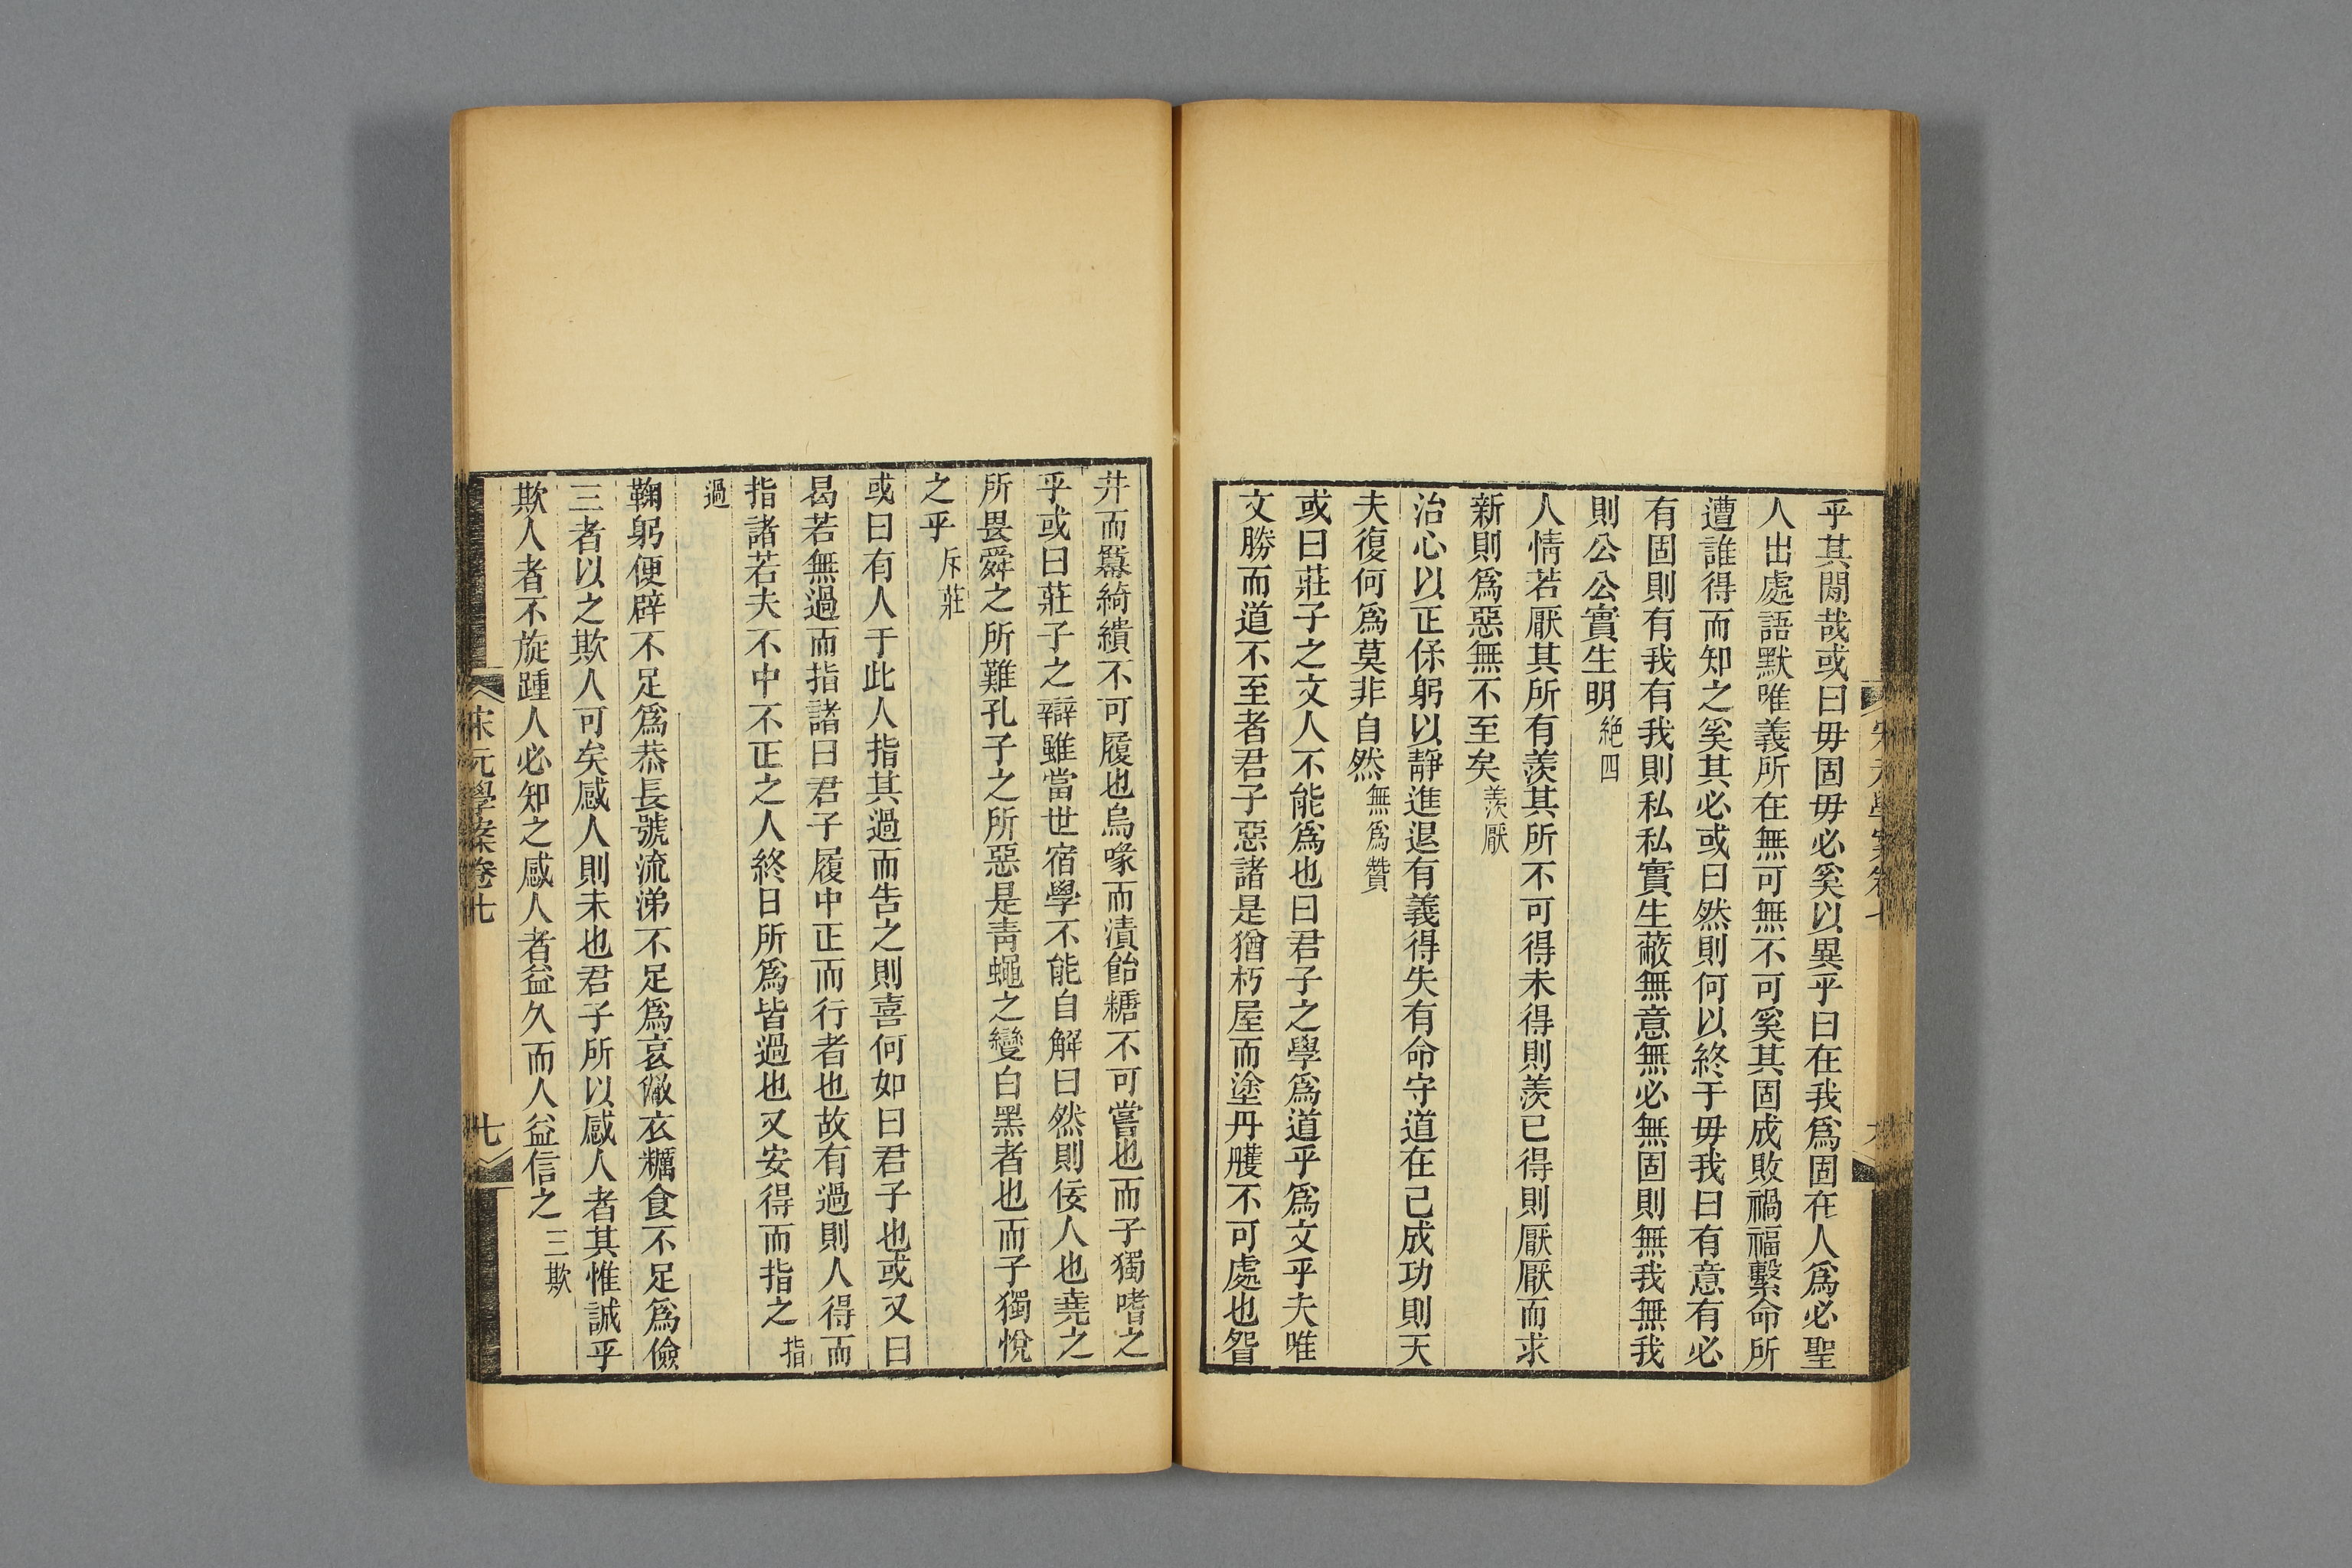 乎其閒哉或曰毋固毋必奚以異乎曰在我爲固在人爲必聖
人出處語默唯義所在無可無不可奚其固成敗禍福繫命所
遭誰得而知之奚其必或曰然則何以終于毋我曰有意有必
有固則有我有我則私私實生蔽無意無必無固則無我無我
則公公實生明絕四
人情若厭其所有羨其所不可得未得則羨已得則厭厭而求
新則爲惡無不至矣羨厭
治心以正保躬以靜進退有義得失有命守道在己成功則天
夫復何爲莫非自然無爲贊
或曰莊子之文人不能爲也曰君子之學爲道乎爲文乎夫唯
文勝而道不至者君子惡諸是猶朽屋而塗丹雘不可處也眢
井而羃綺繢不可履也烏喙而漬飴糖不可嘗也而子獨嗜之
乎或曰莊子之辯雖當世宿學不能自解曰然則佞人也堯之
所畏舜之所難孔子之所惡是靑蠅之變白黑者也而子獨悅
之乎斥莊
或曰有人于此人指其過而告之則喜何如曰君子也或又曰
曷若無過而指諸曰君子履中正而行者也故有過則人得而
指諸若夫不中不正之人終日所爲皆過也又安得而指之指
過
鞠躬便辟不足爲恭長號流涕不足爲哀儆衣糲食不足爲儉
三者以之欺人可矣感人則未也君子所以感人者其惟誠乎
欺人者不旋踵人必知之感人者益久而人益信之三欺
宋元學案卷七
七